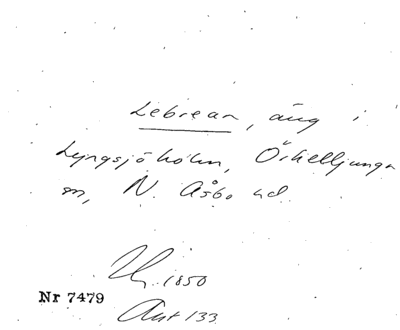 Lebrean, äng i
Lyngsjöholm, Örkelljunga
sn, N. Åsbo hd.
1850
Nr 7479
Akt 133